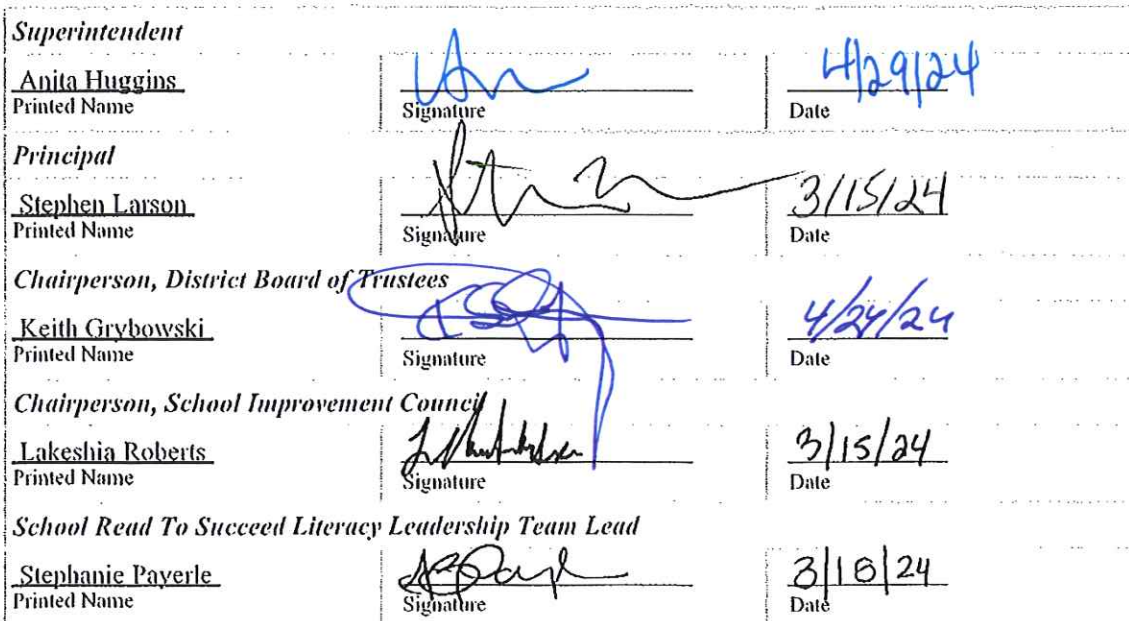 Superintendent
Anita Huggins 4/29/24
Printed Name Signature Date
Principal
Stephen Larson 3/15/24
Printed Name Signature Date
Chairperson, District Board of Trustees
Keith Grybowski 4/24/24
Printed Name Signature Date
Chairperson, School Improvement Council
Lakeshia Roberts 3/15/24
Printed Name Signature Date
School Read To Succeed Literacy Leadership Team Lead
Stephanie Payerle 3/18/24
Printed Name Signature Date